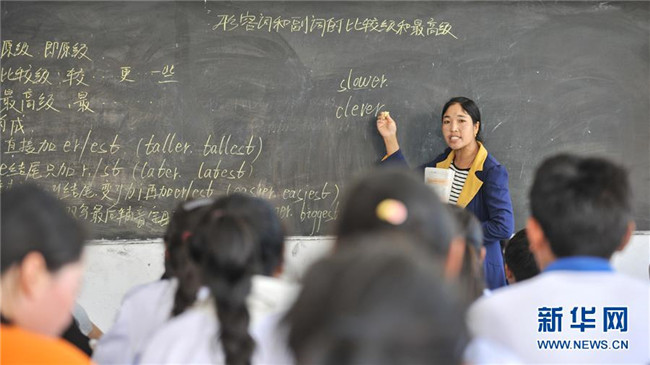 形容词和副词的比较级和最高级
原级 即原级
比较级 较 更 一些
最高级 最
slower.
clever
直接加 er/est (taller. tallest)
e结尾只加 r/st (later. latest)
结尾变y为i再加er/est easiest)
biggest
新华网
WWW.NEWS.CN